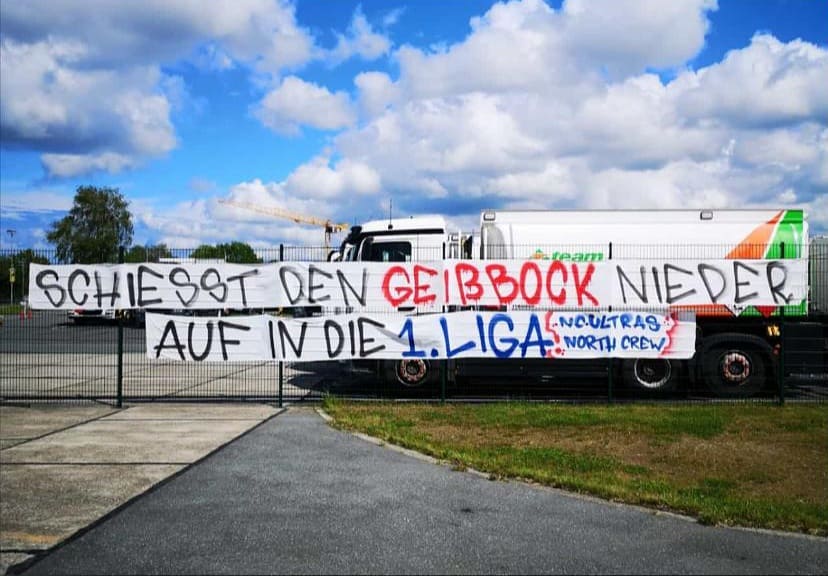 team
SCHIESST DEN GEIßBOCK NIEDER
AUF IN DIE 1. LIGA
NC-ULTRAS
NORTH CREW